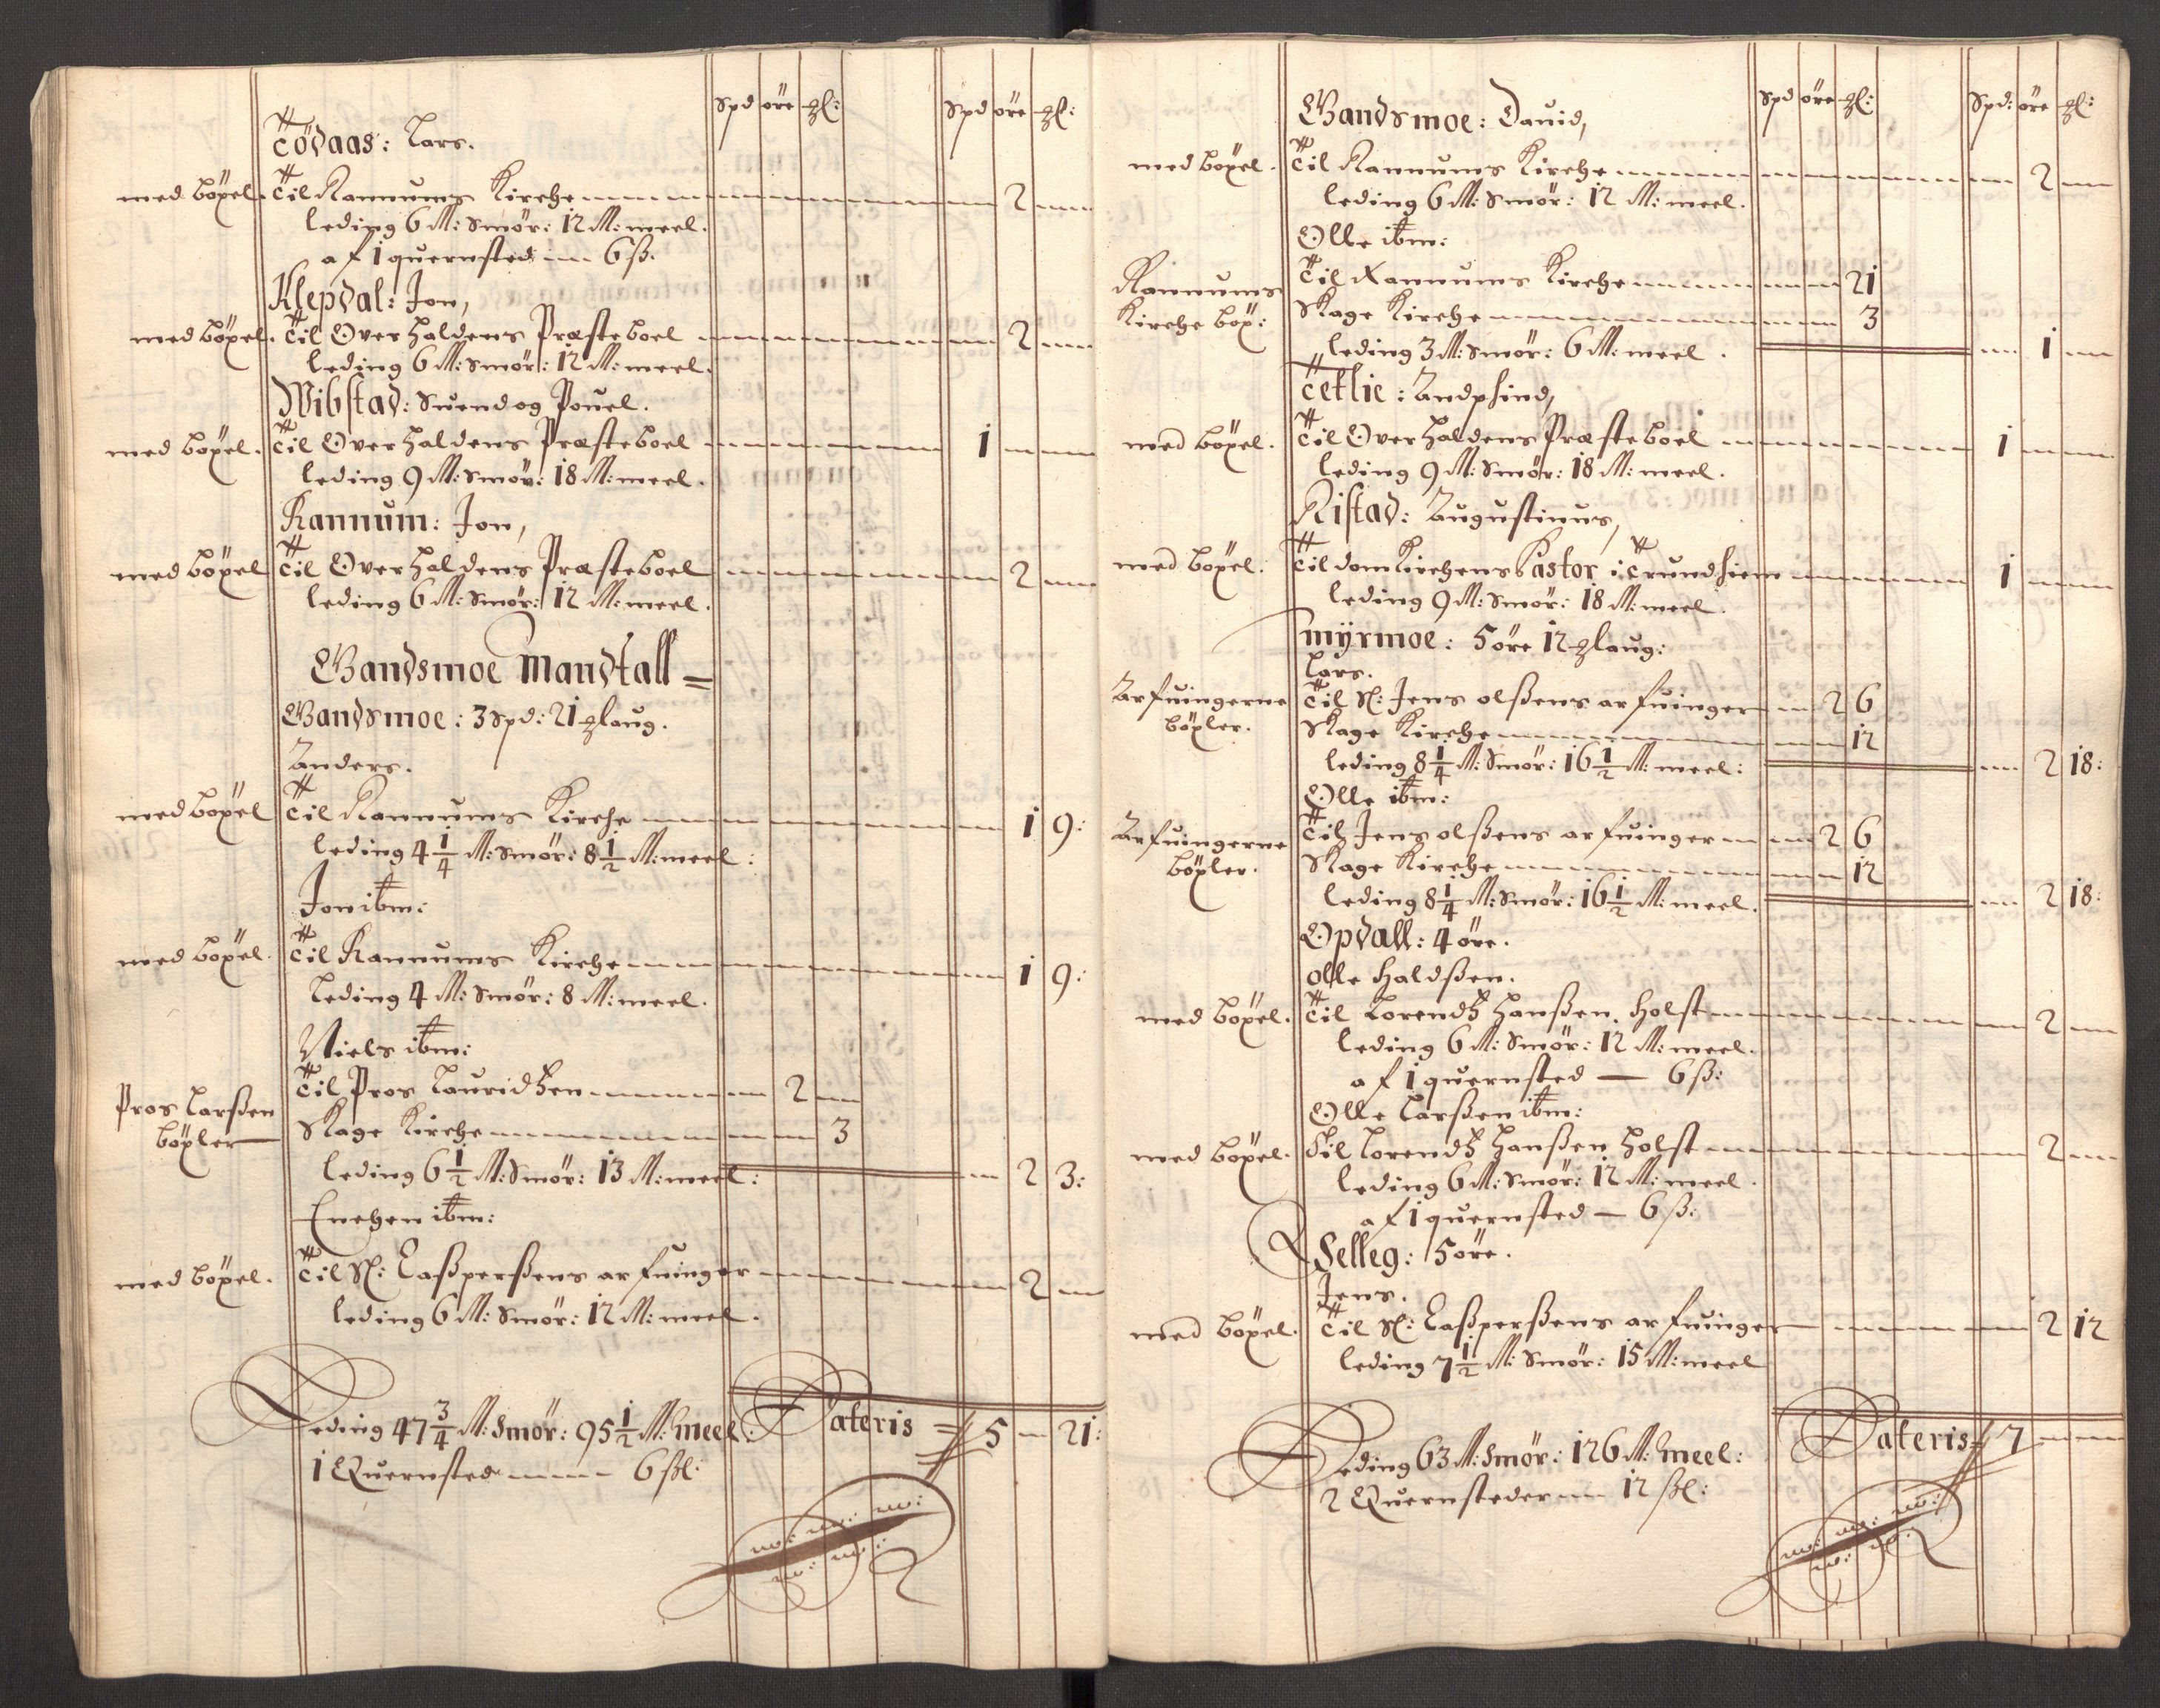 Spd öre gl: Spd öre gl:
Tödaas: Lars.
med böxel. Til Rannums Kirche 2
leding 6 M: Smör: 12 M: meel.
af 1 quernsted 6 ß.
Klepdal: Jon,
med böxel. Til Overhaldens Præsteboel 2
leding 6 M: Smör: 12 M: meel.
Wibstad: Suend og Pouel.
med böxel. Til Overhaldens Præsteboel 1
leding 9 M: Smör: 18 M: meel.
Rannum: Jon,
med böxel Til Overhaldens Præsteboel 2
leding 6 M: Smör: 12 M: meel.
Gandsmoe Mandtall =
Gandsmoe: 3 Spd: 21 glaug.
Anders.
med böxel Til Rannums Kirche 1 9:
leding 4 1/4 M: Smör: 8 1/2 M: meel:
Jon ibm:
med böxel. Til Rannums Kirche 1 9:
Leding 4 M: Smör: 8 M: meel.
Niels ibm:
Pros Larßen Til Pros Lauridtzen 2
böxler Skage Kirche 3
leding 6 1/2 M: Smör: 13 M: meel: 2 3:
Enchen ibm:
med böxel. Til Sl: Casperßens arfuinger 2
leding 6 M: Smör: 12 M: meel.
Leding 47 3/4 M: Smör: 95 1/2 M: Meel: Lateris 5 21:
1 Quernsted 6 ßl:
Spd öre gl: Spd: öre gl:
Gandsmoe: Dauid,
med böxel. Til Rannums Kirche 2
leding 6 M: Smör: 12 M: meel.
Olle ibm:
Rannums Til Rannums Kirche 21
Kirche böx: Skage Kirche 3
leding 3 M: Smör: 6 M: meel. 1
Tetlie: Andphind,
med böxel. Til Overhaldens Præsteboel 1
leding 9 M: Smör: 18 M: meel.
Ristad: Augustinus,
med böxel. Til domkirchens Pastor i Trundhiem 1
leding 9 M: Smör: 18 M: meel.
Myrmoe: 5 öre 12 glaug:
Lars.
Arfuingerne Til Sl: Jens olßens arfuinger 2 6
böxler. Skage Kirche 12
leding 8 1/4 M: Smör: 16 1/2 M: meel: 2 18:
Olle ibm:
Arfuingerne Til Jens olßens arfuinger 2 6
böxler. Skage Kirche 12
leding 8 1/4 M: Smör: 16 1/2 M: meel. 2 18:
Opdall: 4 öre.
olle Haldßen.
med böxel. Til Lorendtz Hanßen Holst 2
leding 6 M: Smör: 12 M: meel.
af 1 quernsted 6 ß:
Olle Larßen ibm:
med böxel. Til Lorendtz Hanßen Holst 2
leding 6 M: Smör: 12 M: meel.
af 1 quernsted 6 ß:
Selleg: 5 öre.
Jens.
med böxel. Til Sl: Casperßens arfuinger 2 12
leding 7 1/2 M: Smör: 15 M: meel
Leding 63 M: Smör: 126 M: Meel: Lateris 7
2 Quernsteder 12 ßl: